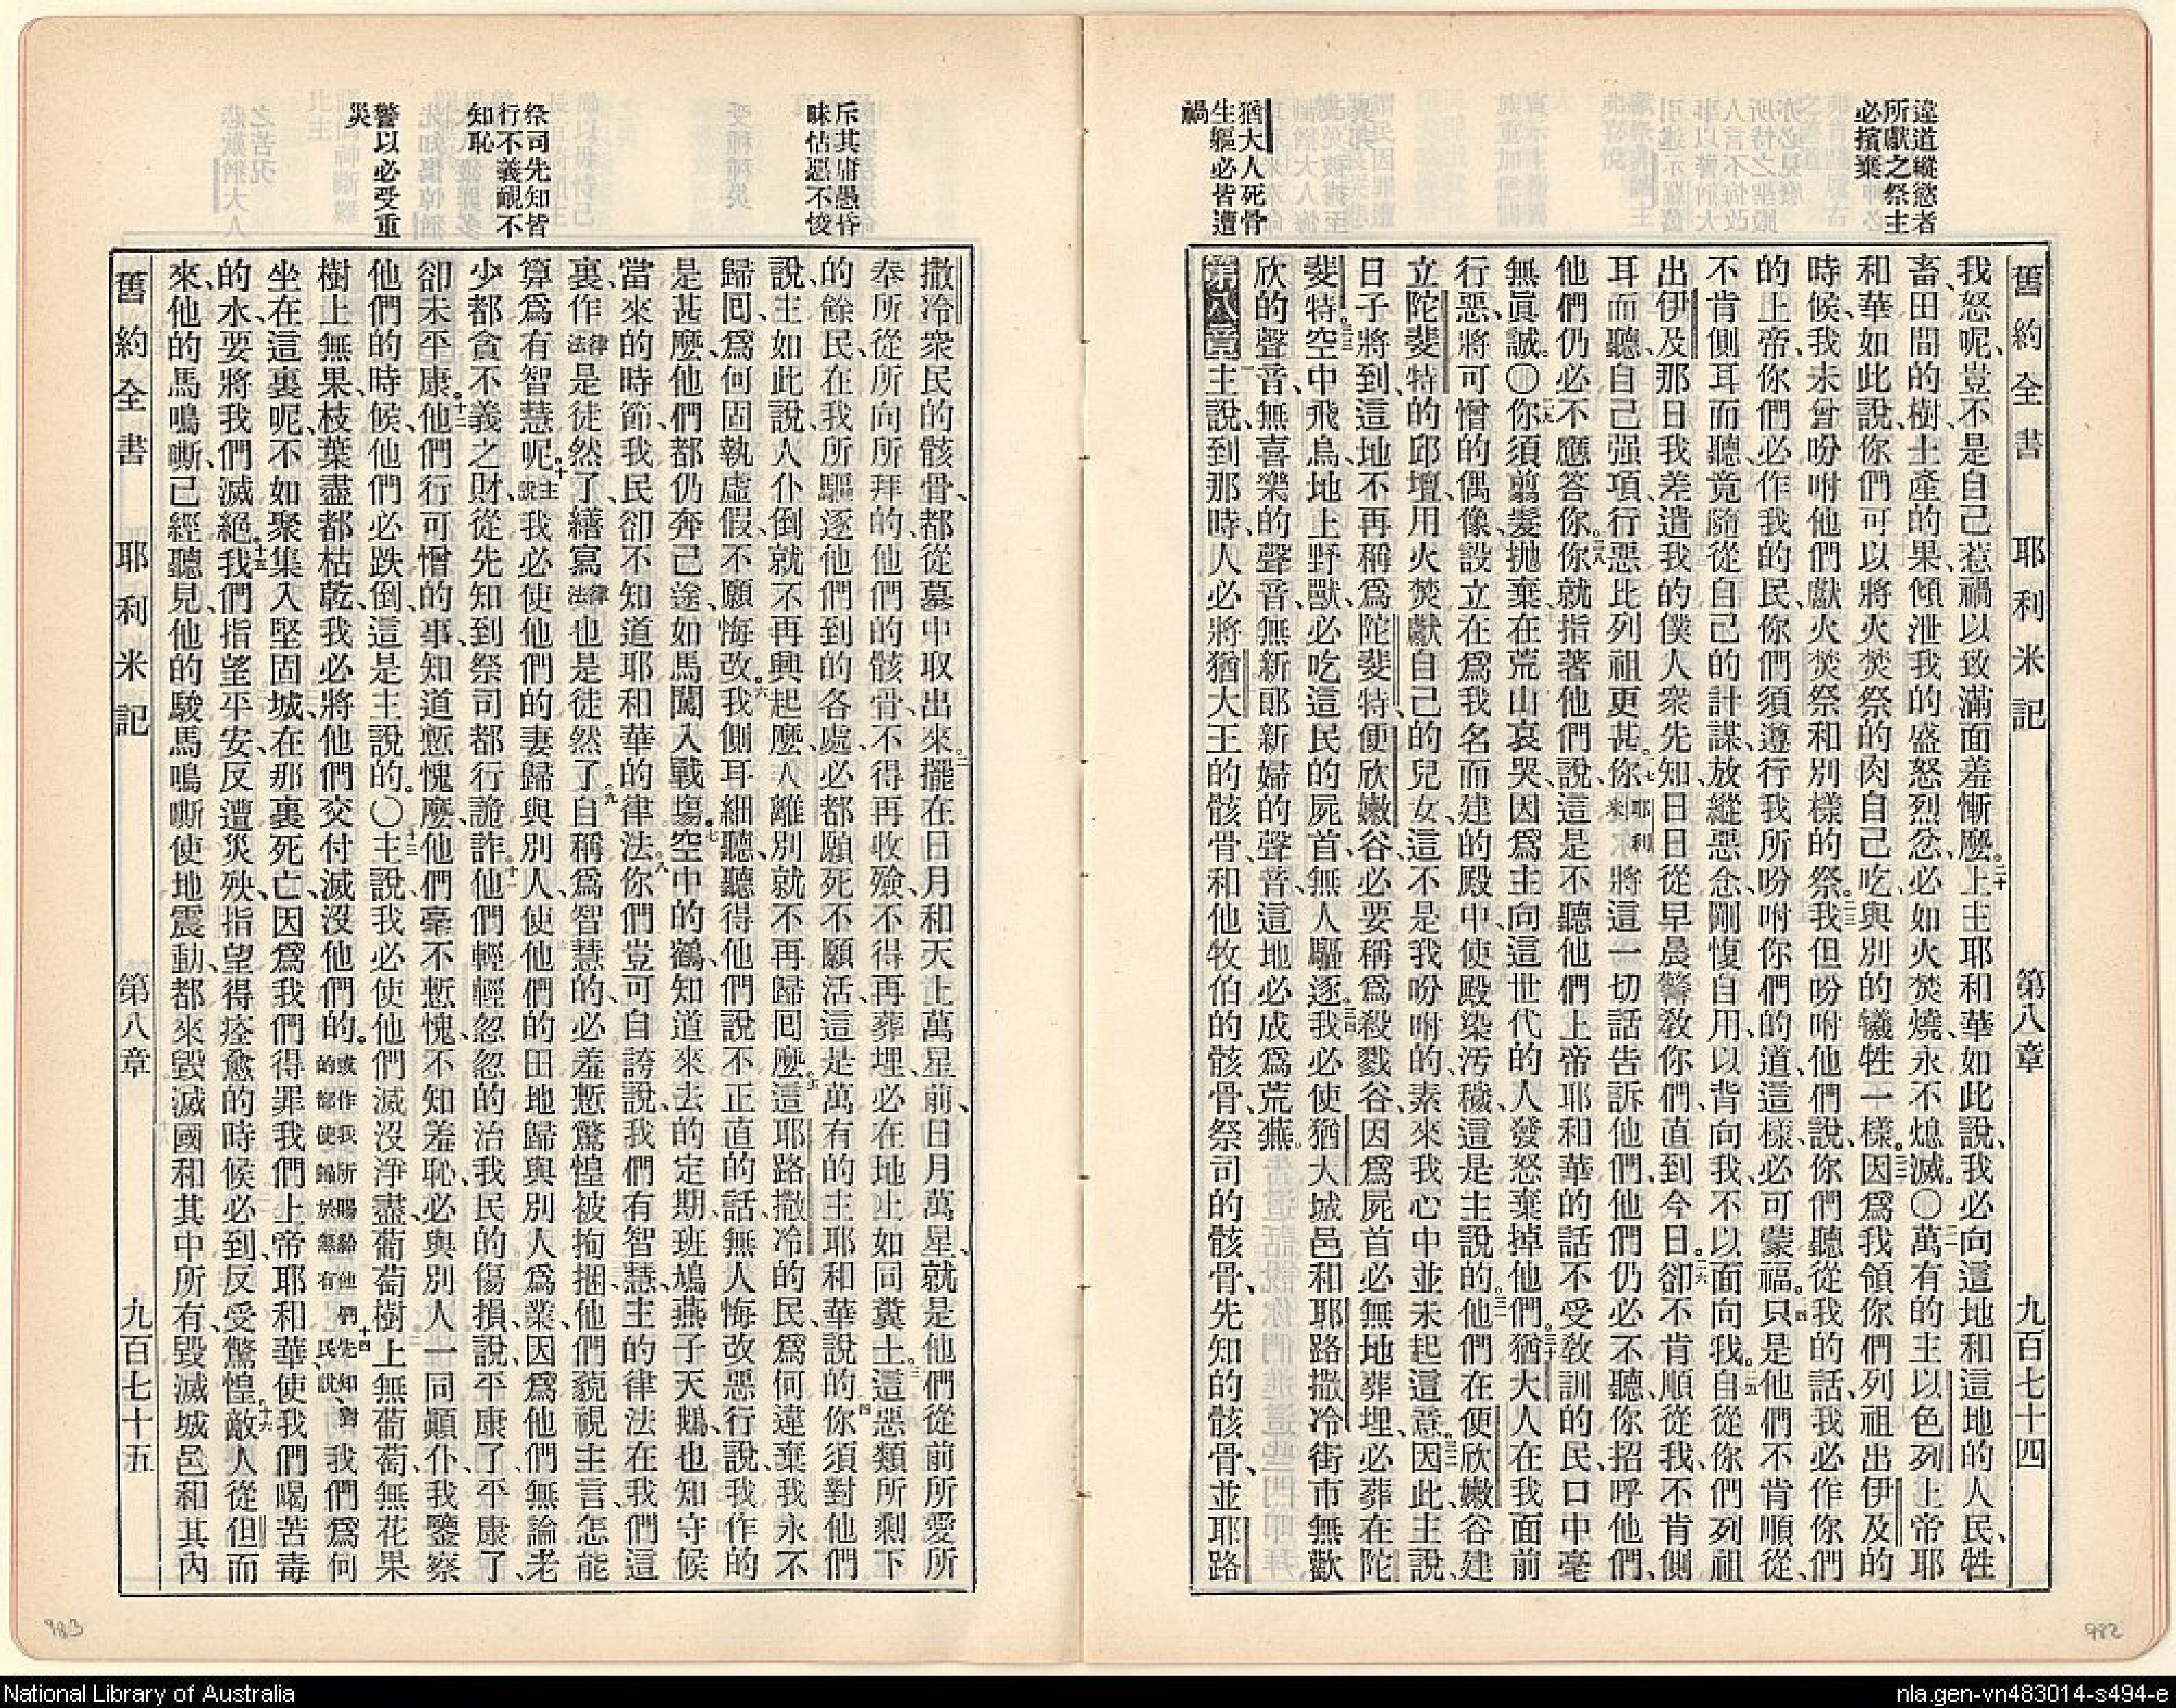 違道縱慾者
所獻之祭主
必擯棄
猶大人死骨
生軀必皆遭
禍
舊約全書 耶利米記 第八章 九百七十四
我怒呢、豈不是自己惹禍以致滿面羞慚麼。二十主耶和華如此說、我必向這地和這地的人民、牲
畜、田間的樹、土產的果、傾泄我的盛怒烈忿、必如火焚燒、永不熄滅。〇二一萬有的主以色列上帝耶
和華如此說、你們可以將火焚祭的肉自己吃、與別的犧牲一樣。二二因爲我領你們列祖出伊及的
時候、我未曾吩咐他們獻火焚祭和別樣的祭。二三我但吩咐他們說、你們聽從我的話、我必作你們
的上帝、你們必作我的民、你們須遵行我所吩咐你們的道、這樣必可蒙福。二四只是他們不肯順從、
不肯側耳而聽、竟隨從自己的計謀、放縱惡念、剛愎自用、以背向我、不以面向我。二五自從你們列祖
出伊及那日、我差遣我的僕人衆先知、日日從早晨警敎你們、直到今日。二六卻不肯順從我、不肯側
耳而聽、自己强項、行惡比列祖更甚。二七你耶利米將這一切話告訴他們、他們仍必不聽、你招呼他們、
他們仍必不應答你。二八你就指著他們說、這是不聽他們上帝耶和華的話、不受敎訓的民、口中毫
無眞誠。〇二九你須剪髮拋棄、在荒山哀哭、因爲主向這世代的人發怒、棄掉他們。三十猶大人在我面前
行惡、將可憎的偶像、設立在爲我名而建的殿中、使殿染汚穢、這是主說的。三一他們在便欣嫩谷建
立陀斐特的邱壇、用火焚獻自己的兒女、這不是我吩咐的、素來我心中並未起這意。三二因此、主說、
日子將到、這地不再稱爲陀斐特、便欣嫩谷、必要稱爲殺戮谷、因爲屍首必無地葬埋、必葬在陀
斐特。三三空中飛鳥、地上野獸、必吃這民的屍首、無人驅逐。三四我必使猶大城邑和耶路撒冷街市、無歡
欣的聲音、無喜樂的聲音、無新郞新婦的聲音、這地必成爲荒蕪。
第八章一主說、到那時、人必將猶大王的骸骨、和他牧伯的骸骨、祭司的骸骨、先知的骸骨、並耶路
斥其庸愚昏
昧怙惡不悛
祭司先知皆
行不義靦不
知恥
警以必受重
災
撒冷衆民的骸骨、都從墓中取出來。二擺在日月和天上萬星前、日月萬星、就是他們從前所愛所
奉所從所向所拜的、他們的骸骨、不得再收殮、不得再葬埋、必在地上如同糞土。三這惡類所剩下
的餘民、在我所驅逐他們到的各處、必都願死不願活、這是萬有的主耶和華說的。四你須對他們
說、主如此說、人仆倒就不再興起麼、人離別就不再歸囘麼。五這耶路撒冷的民、爲何違棄我、永不
歸囘、爲何固執虛假、不願悔改。六我側耳細聽、聽得他們說不正直的話、無人悔改惡行、說我作的
是甚麼、他們都仍奔己途、如馬闖入戰塲。七空中的鶴、知道來去的定期、班鳩燕子天鵝、也知守候
當來的時節、我民卻不知道耶和華的律法。八你們豈可自誇說、我們有智慧、主的律法在我們這
裏、作律法是徒然了、繕寫律法也是徒然了。九自稱爲智慧的、必羞慙驚惶被拘捆、他們藐視主言、怎能
算爲有智慧呢。十主說我必使他們的妻歸與別人、使他們的田地歸與別人爲業、因爲他們無論老
少都貪不義之財、從先知到祭司都行詭詐。十一他們輕輕忽忽的治我民的傷損、說平康了、平康了、
卻未平康。十二他們行可憎的事、知道慙愧麼、他們毫不慙愧、不知羞恥、必與別人一同顚仆、我鑒察
他們的時候、他們必跌倒、這是主說的。〇十三主說、我必使他們滅沒淨盡、葡萄樹上無葡萄、無花果
樹上無果、枝葉盡都枯乾、我必將他們交付滅沒他們的。或作我所賜給他們的都使歸於無有十四先知對民說、我們爲何
坐在這裏呢、不如聚集入堅固城、在那裏死亡、因爲我們得罪我們上帝耶和華、使我們喝苦毒
的水、要將我們滅絕。十五我們指望平安、反遭災殃、指望得痊愈的時候必到、反受驚惶。十六敵人從但而
來、他的馬鳴嘶、已經聽見、他的駿馬鳴嘶、使地震動、都來毀滅國和其中所有、毀滅城邑和其內
舊約全書 耶利米記 第八章 九百七十五
983
982
National Library of Australia
nla.gen-vn483014-s494-e